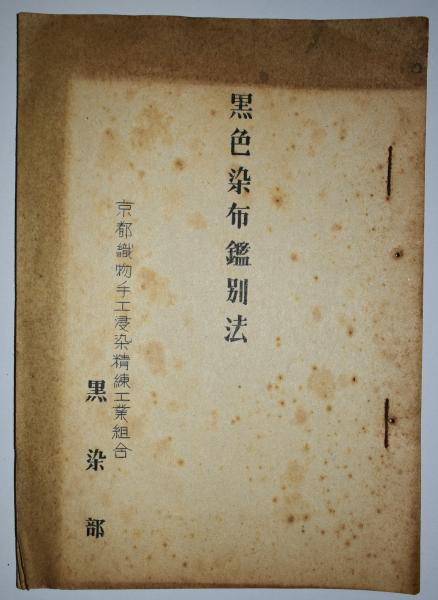 黒色染布鑑別法
京都織物手工浸染精練工業組合
黒染部